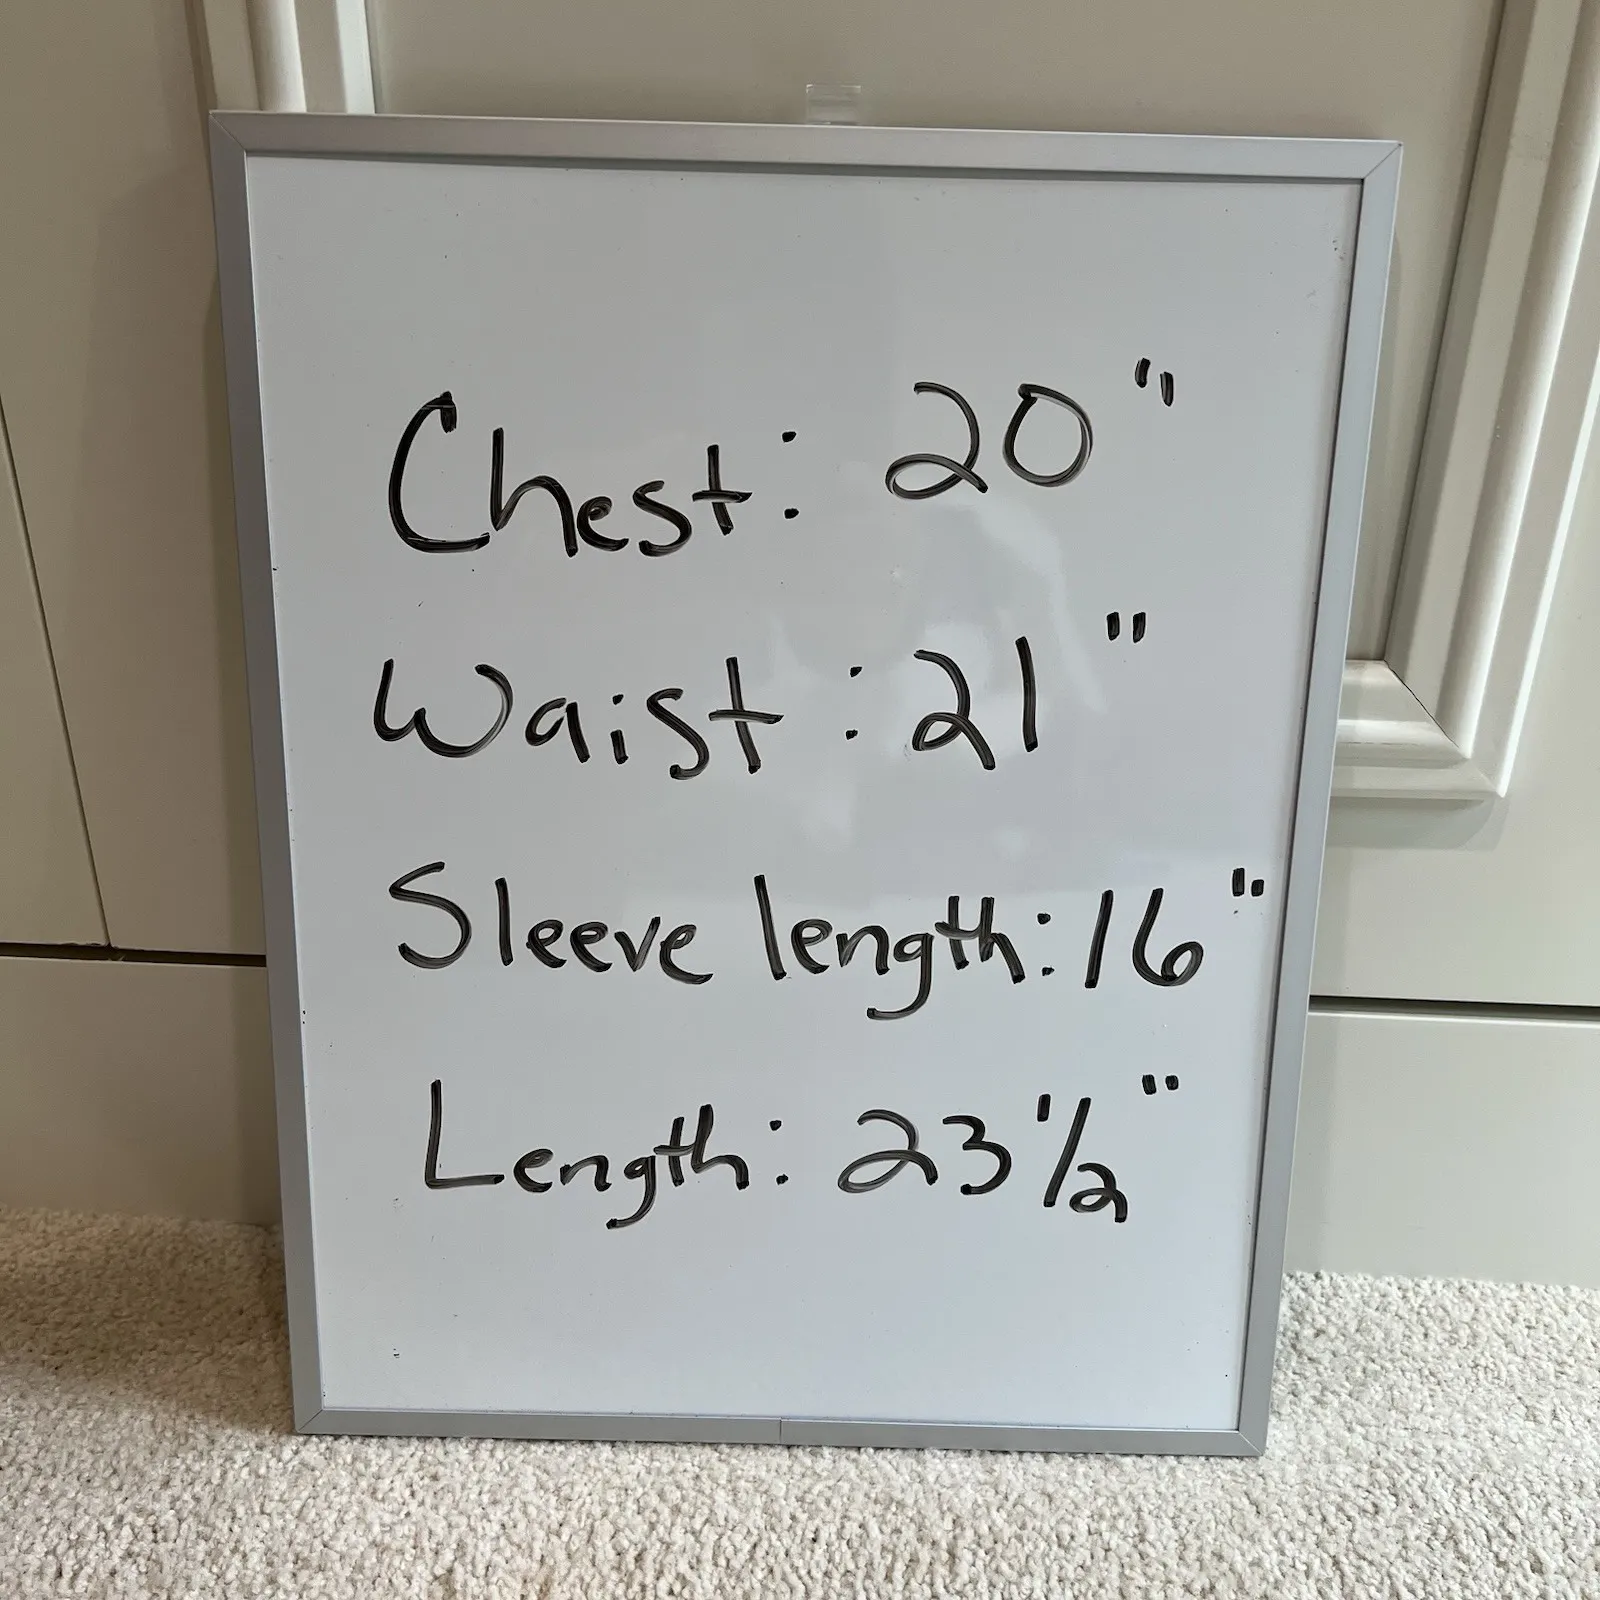 Chest: 20"
Waist: 21"
Sleeve length: 16"
Length: 23 1/2"